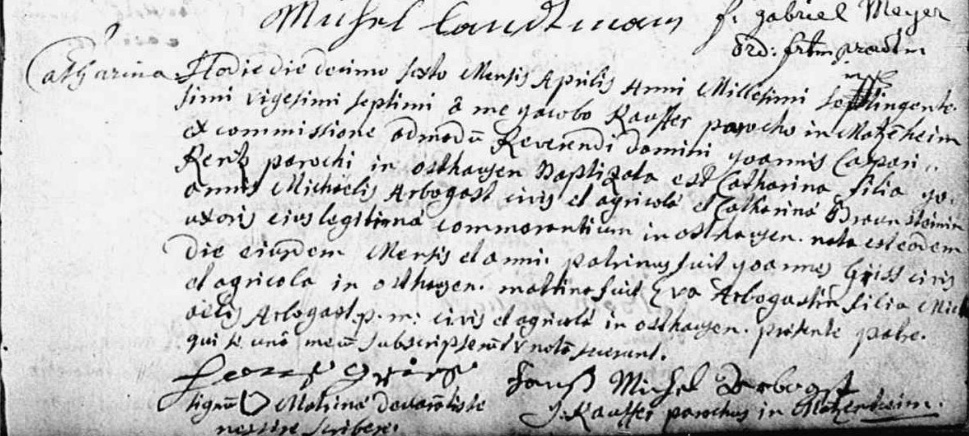 Michel Landtman f. gabriel Meyer
Ord: frtm praedtm
Catharina
Hodie die decimo sexto Mensis Aprilis Anni Millesimi septingente-
simi vigesimi septimi â me jacobo Kauffer parocho in Matzenheim
ex commissione admodū Reverendi domini joannis Caspari
Rentz parochi in osthausen Baptizata est Catharina filia jo-
annis Michäelis Arbogast civis et agricolæ et Catharinâ Braunsteinin
uxoris eius legitimâ commorantium in osthausen. nata est eodem
die eiusdem Mensis et anni. patrinus fuit joannes Griss civis
et agricola in osthausen. mattina fuit Eva Arbogastin filia Mich
aelis Arbogast p. m: civis et agricolæ in osthausen. præsente patre
qui se unâ mecū subscripserūt v notā fecerunt.
Hans Michel Arbogast
signū Matrinæ
nescire scribere.
J. Kauffer parochus in Matzenheim.